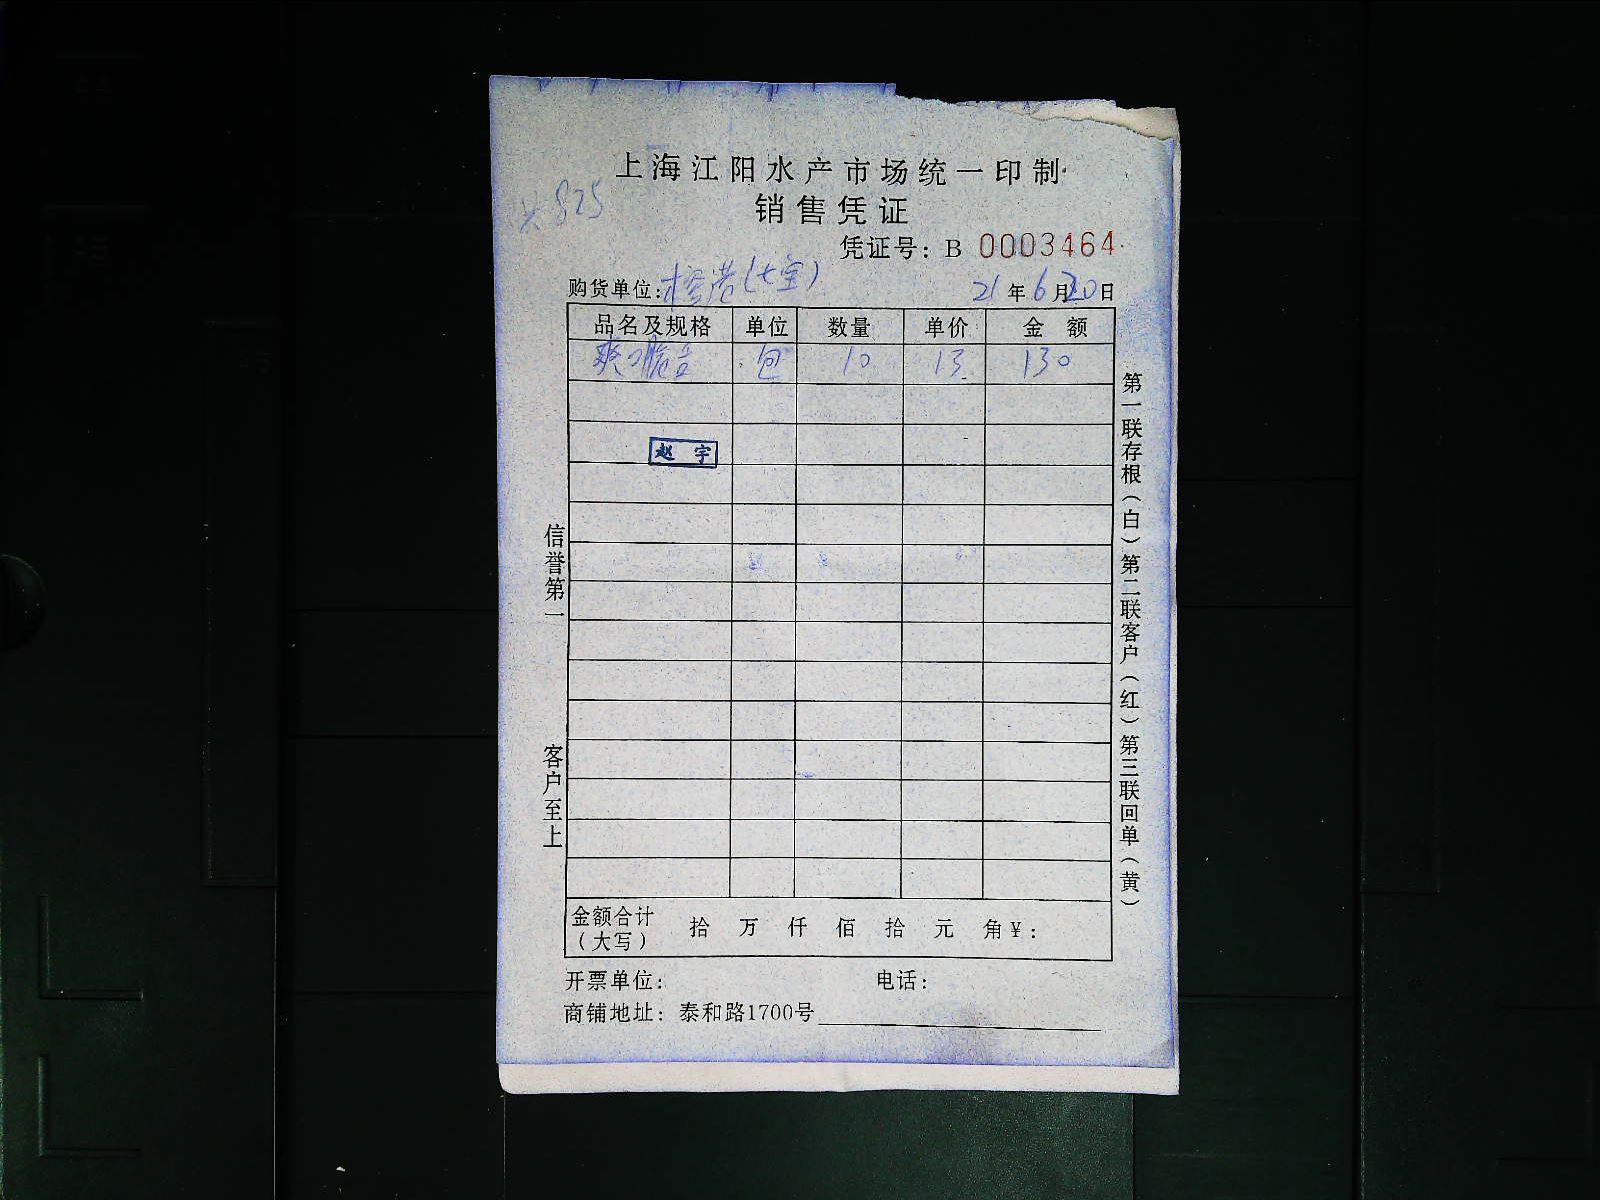 上海江阳水产市场统一印制
销售凭证
凭证号：B 0003464
购货单位： 21年6月20日
品名及规格 单位 数量 单价 金额
爽口脆 包 10 13 130
赵宇
信誉第一
客户至上
第一联存根（白）第二联客户（红）第三联回单（黄）
金额合计（大写） 拾 万 仟 佰 拾 元 角 ¥：
开票单位： 电话：
商铺地址：泰和路1700号